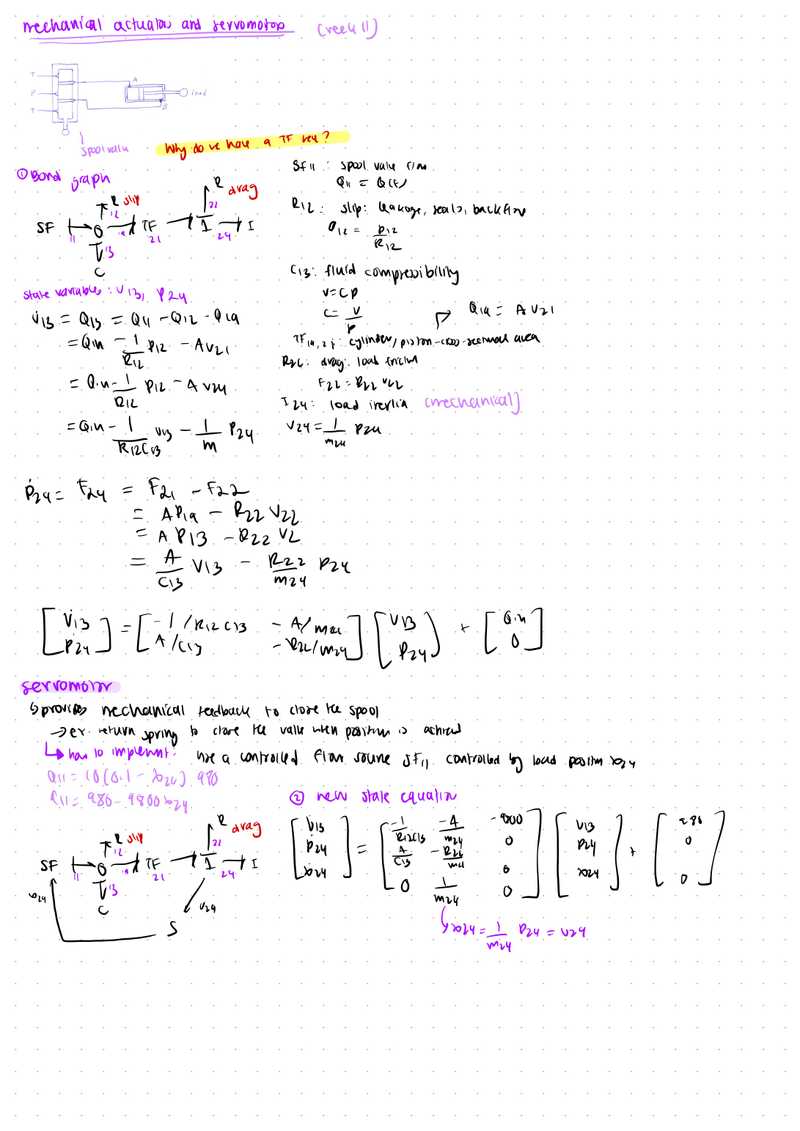 mechanical actuators and servomotors (week 11)
T
P
T
A
B
load
spool valve
Why do we have a TF key?
① Bond graph
SF 11 0 19 TF 21 1 24 I
R slip 12
C 13
R drag 21
Sf11 : spool valve flow
Q11 = Q(t)
R12 : slip: leakage, seals, backflow
Q12 = P12 / R12
C13: fluid compressibility
V = CP
C = V / P
Q19 = A V21
TF19,21: cylinder/piston-cross-sectional area
R22: drag: load friction
F22 = R22 V22
I24: load inertia (mechanical)
V24 = 1/m24 P24
State variables: V13, P24
V̇13 = Q13 = Q11 - Q12 - Q19
= Qin - 1/R12 P12 - A V21
= Qin - 1/R12 P12 - A V24
= Qin - 1/R12C13 V13 - 1/m P24
Ṗ24 = F24 = F21 - F22
= A P19 - R22 V22
= A P13 - R22 V2
= A/C13 V13 - R22/m24 P24
[V̇13 Ṗ24] = [-1/R12C13 -A/m24 A/C13 -R22/m24] [V13 P24] + [Qin 0]
servomotor
↳ provides mechanical feedback to close the spool
→ ex. return spring to close the valve when position is achieved
↳ how to implement: use a controlled flow source SF11 controlled by load position x24
Q11 = 10(0.1 - x24) 980
Q11 = 980 - 9800 x24
② new state equation
SF 11 0 19 TF 21 1 24 I
R slip 12
C 13
R drag 21
x24
V24
S
[V̇13 Ṗ24 ẋ24] = [-1/R12C13 -A/m24 -9800 A/C13 -R22/m24 0 0 1/m24 0] [V13 P24 x24] + [980 0 0]
↳ ẋ24 = 1/m24 P24 = V24